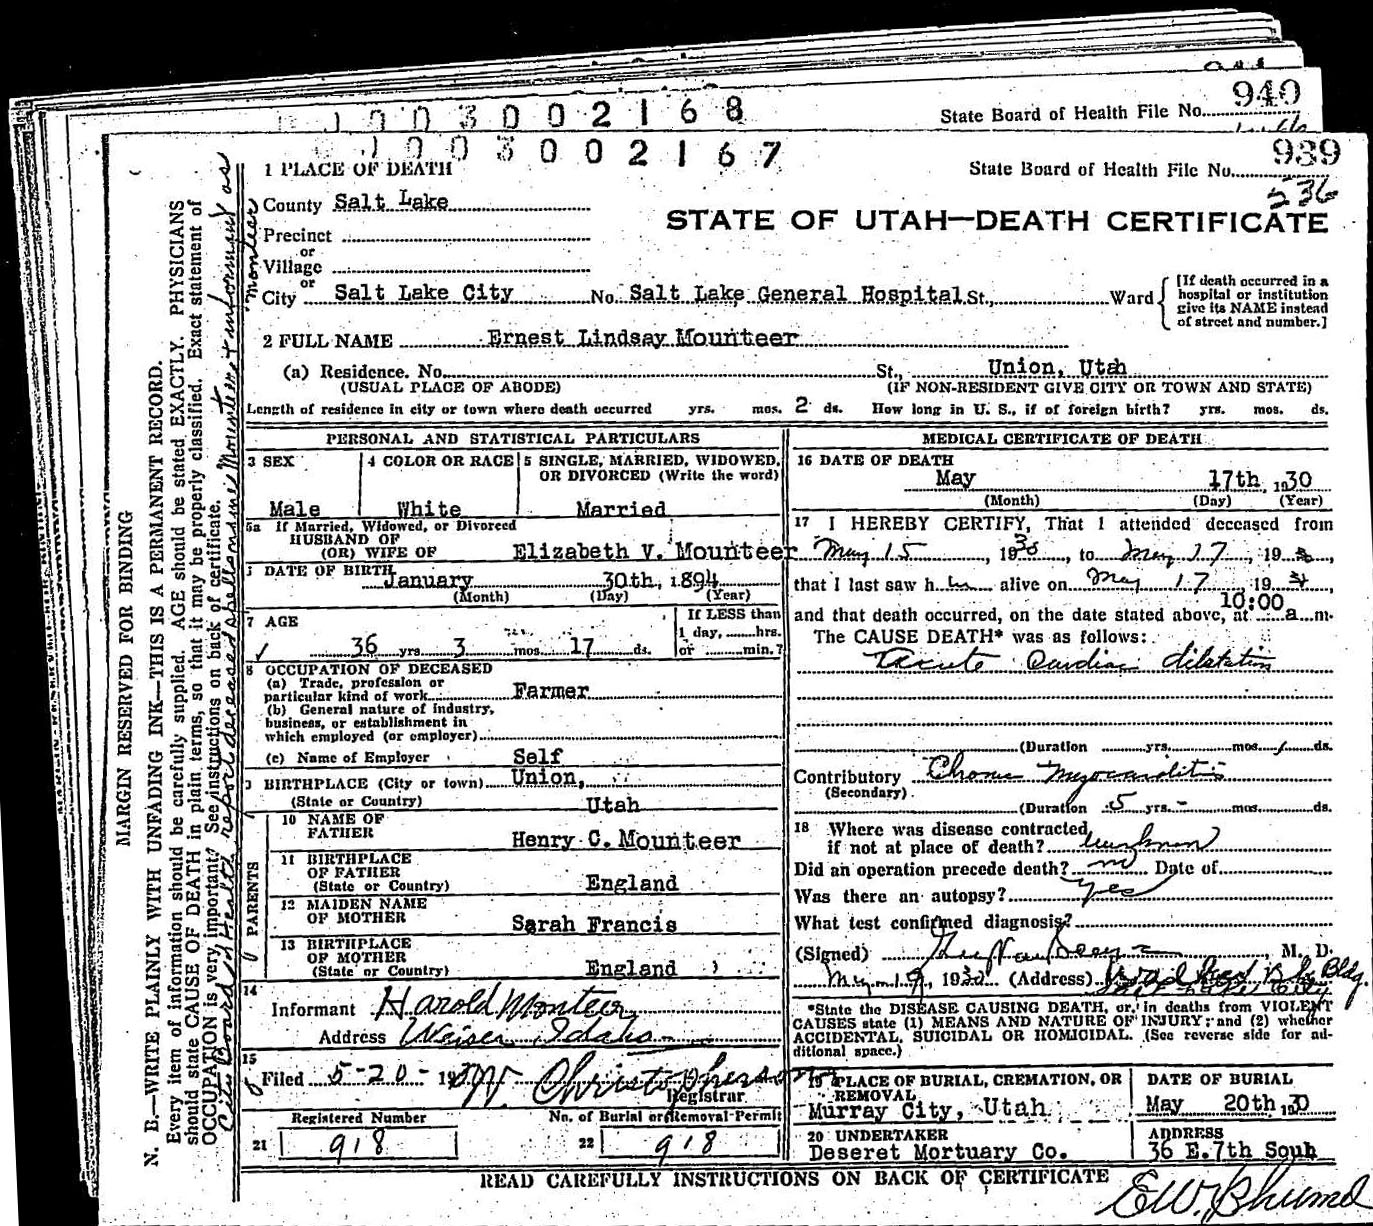 940
State Board of Health File No.
1003002168
1003002167
939
State Board of Health File No.
236
1 PLACE OF DEATH
County Salt Lake
STATE OF UTAH—DEATH CERTIFICATE
Precinct
or
Village
or
City Salt Lake City No. Salt Lake General Hospital St., Ward
[If death occurred in a hospital or institution give its NAME instead of street and number.]
2 FULL NAME Ernest Lindsay Mounteer
(a) Residence. No. St., Union, Utah
(USUAL PLACE OF ABODE) (IF NON-RESIDENT GIVE CITY OR TOWN AND STATE)
Length of residence in city or town where death occurred yrs. mos. 2 ds. How long in U. S., if of foreign birth? yrs. mos. ds.
PERSONAL AND STATISTICAL PARTICULARS
3 SEX 4 COLOR OR RACE 5 SINGLE, MARRIED, WIDOWED,
OR DIVORCED (Write the word)
Male White Married
5a If Married, Widowed, or Divorced
HUSBAND OF
(OR) WIFE OF Elizabeth V. Mounteer
DATE OF BIRTH
January 30th, 1894
(Month) (Day) (Year)
7 AGE If LESS than
1 day, hrs.
36 yrs. 3 mos. 17 ds. or min.?
8 OCCUPATION OF DECEASED
(a) Trade, profession or
particular kind of work Farmer
(b) General nature of industry,
business, or establishment in
which employed (or employer)
(c) Name of Employer Self
BIRTHPLACE (City or town) Union,
(State or Country) Utah
PARENTS
10 NAME OF
FATHER Henry C. Mounteer
11 BIRTHPLACE
OF FATHER
(State or Country) England
12 MAIDEN NAME
OF MOTHER Sarah Francis
13 BIRTHPLACE
OF MOTHER
(State or Country) England
14
Informant Harold Monteer
Address Weiser Idaho
15
Filed 5-20-1930 W. Christopherson
Registrar
Registered Number No. of Burial or Removal Permit
21 918 22 918
MEDICAL CERTIFICATE OF DEATH
16 DATE OF DEATH
May 17th, 1930
(Month) (Day) (Year)
17 I HEREBY CERTIFY, That I attended deceased from
May 15, 1930, to May 17, 19
that I last saw h im alive on May 17 19
and that death occurred, on the date stated above, at 10:00 a m.
The CAUSE DEATH* was as follows:
Acute Cardiac dilatation
(Duration yrs. mos. 1 ds.
Contributory Chronic Myocarditis
(Secondary)
(Duration 5 yrs. - mos. ds.
18 Where was disease contracted
if not at place of death? unknown
Did an operation precede death? no Date of
Was there an autopsy? yes
What test confirmed diagnosis?
(Signed) M. D.
May 19, 1930 (Address) Bldg.
*State the DISEASE CAUSING DEATH, or, in deaths from VIOLENT
CAUSES state (1) MEANS AND NATURE OF INJURY; and (2) whether
ACCIDENTAL, SUICIDAL OR HOMICIDAL. (See reverse side for ad-
ditional space.)
19 PLACE OF BURIAL, CREMATION, OR DATE OF BURIAL
REMOVAL
Murray City, Utah May 20th 1930
20 UNDERTAKER ADDRESS
Deseret Mortuary Co. 36 E. 7th Souh
READ CAREFULLY INSTRUCTIONS ON BACK OF CERTIFICATE
MARGIN RESERVED FOR BINDING
N. B.—WRITE PLAINLY WITH UNFADING INK—THIS IS A PERMANENT RECORD.
Every item of information should be carefully supplied. AGE should be stated EXACTLY. PHYSICIANS
should state CAUSE OF DEATH in plain terms, so that it may be properly classified. Exact statement of
OCCUPATION is very important. See instructions on back of certificate.
City Board of Health report deceased spells name Mounteer & informant as
Monteer